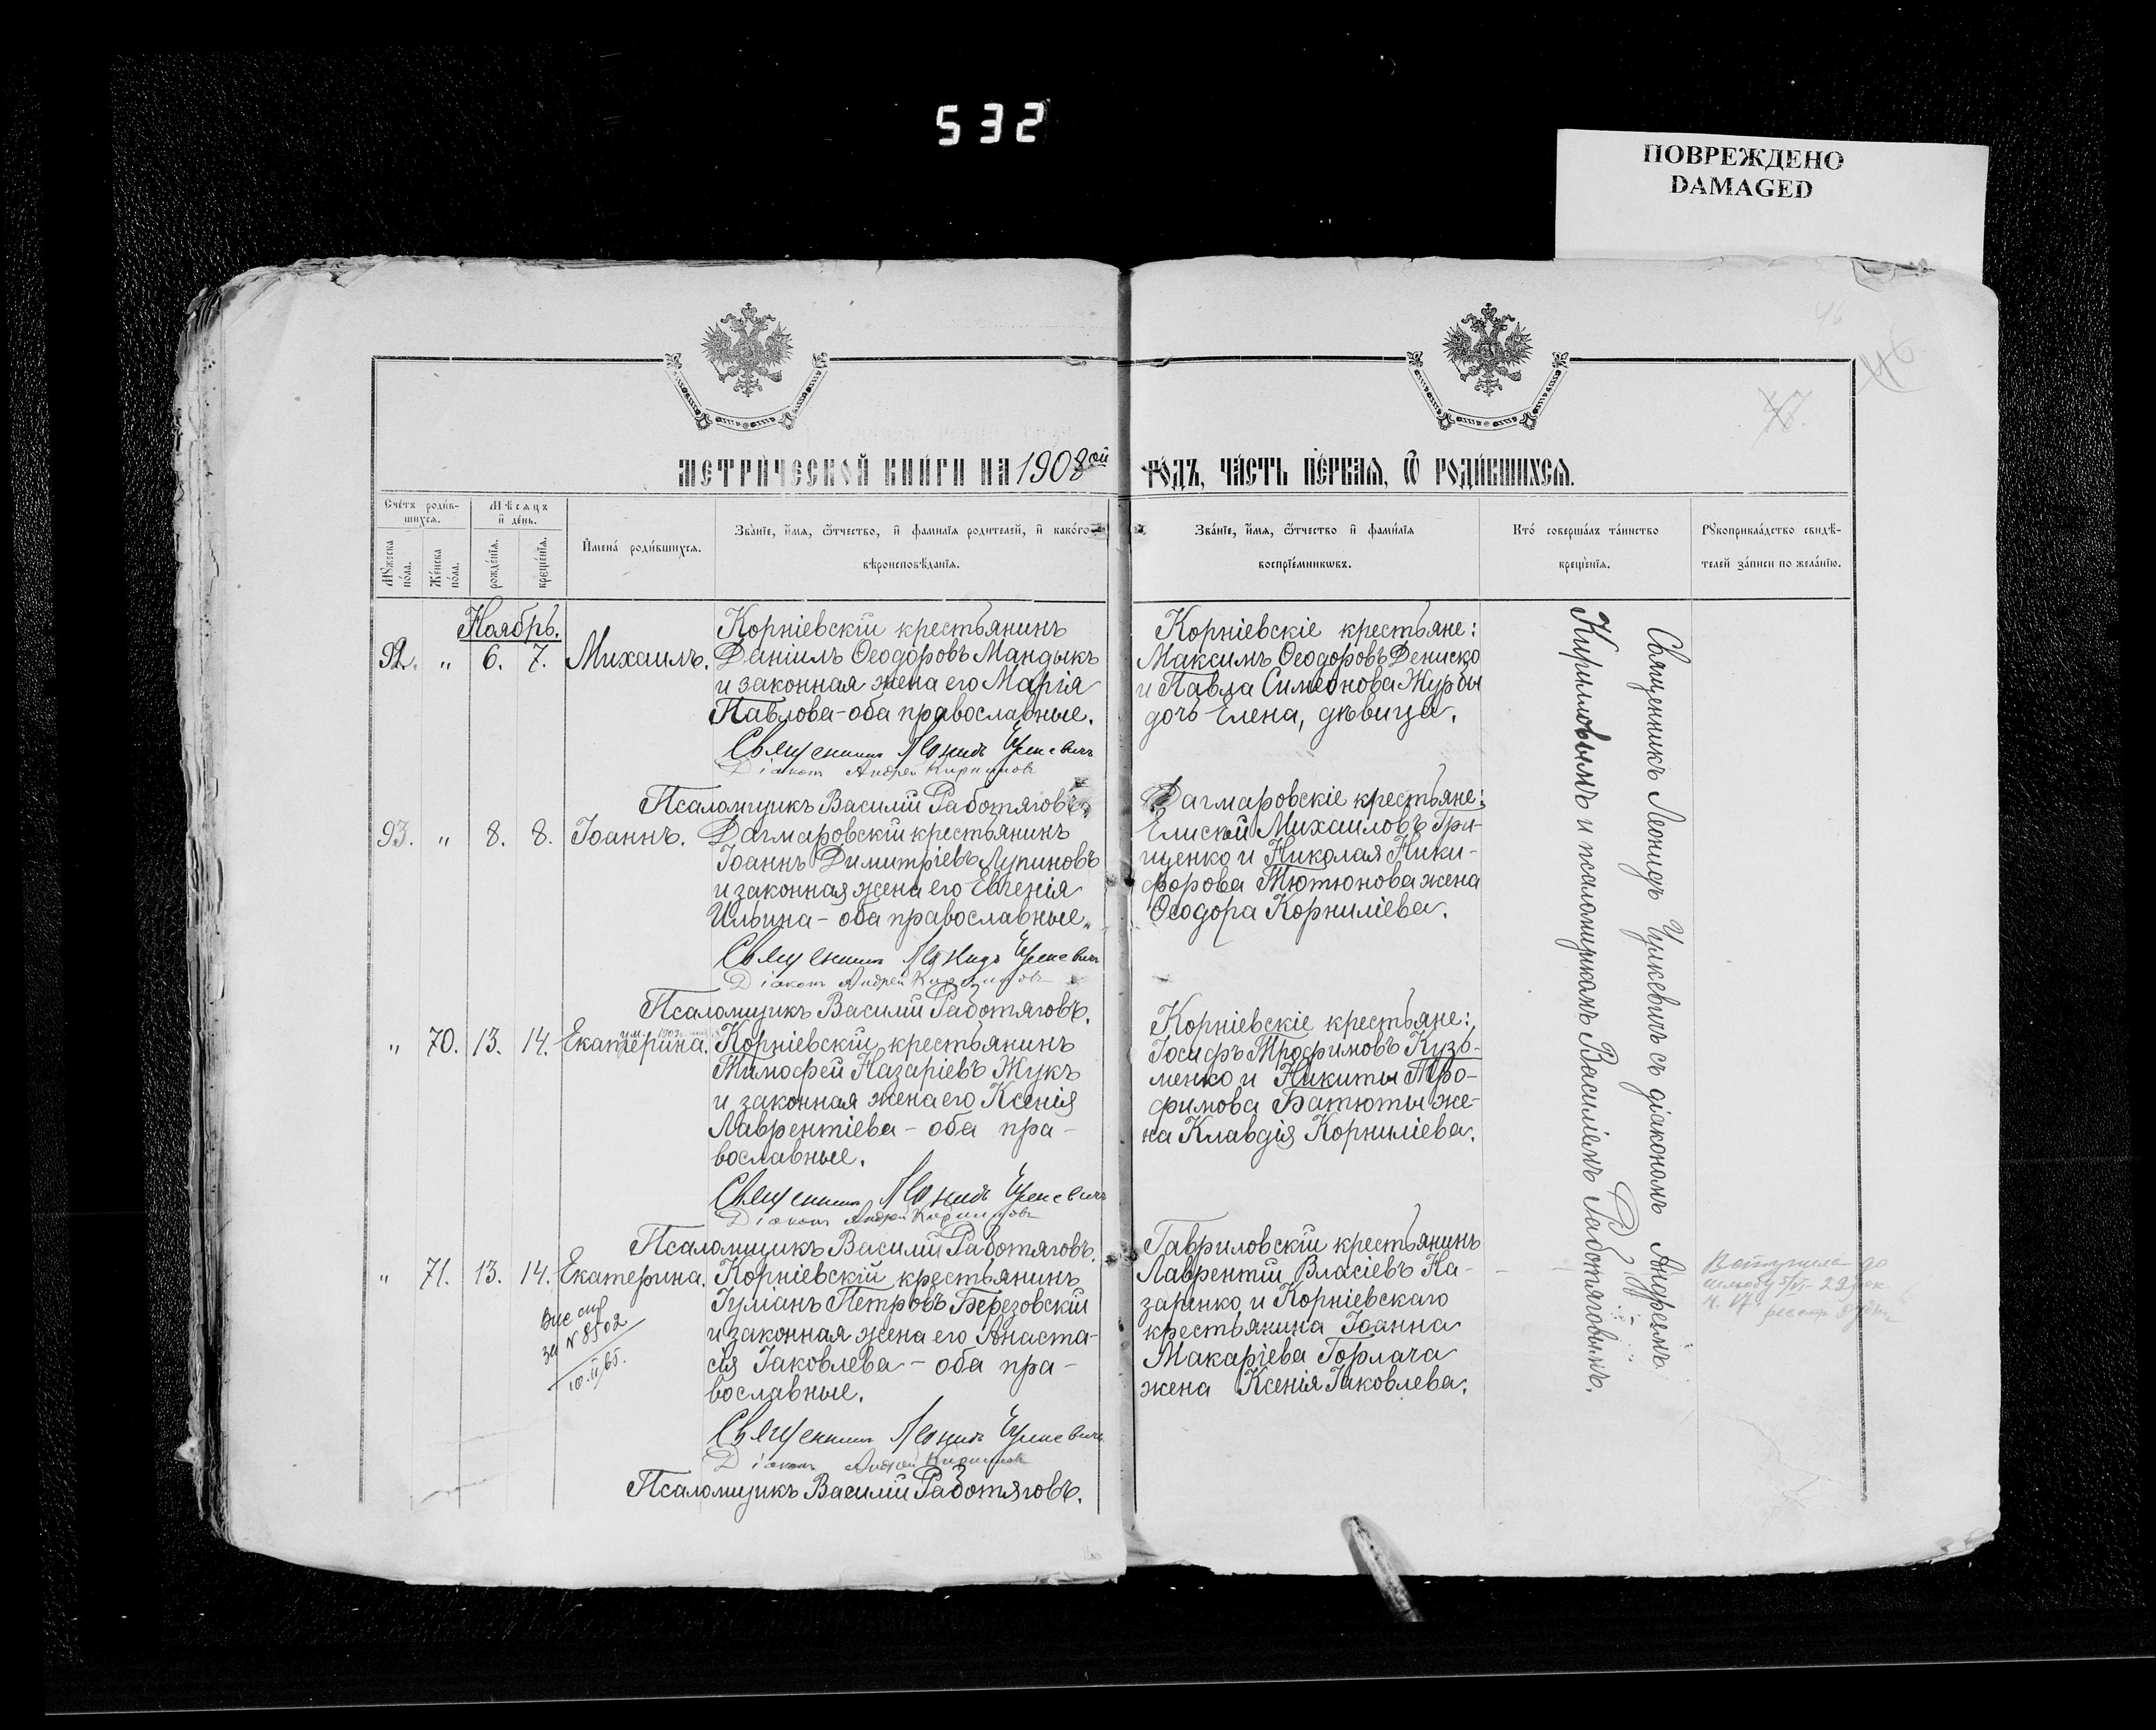 532
ПОВРЕЖДЕНО
DAMAGED
46
47.
МЕТРИЧЕСКОЙ КНИГИ НА 1908ой ГОДЪ, ЧАСТЬ ПЕРВАЯ, Ѿ РОДИВШИХСЯ.
Счетъ родив-
шихся.
Мѣсяцъ
и день.
Мужеска
пола.
Женска
пола.
рожденія.
крещенія.
Имена родившихся.
Званіе, имя, ѿчество, и фамилія родителей, и какого
вѣроисповѣданія.
Званіе, имя, ѿчество и фамилія
воспріемниковъ.
Кто совершалъ таинство
крещенія.
Рукоприкладство свидѣ-
телей записи по желанію.
Ноябрь.
92. „ 6. 7. Михаилъ.
Корніевскій крестьянинъ
Даніилъ Ѳеодоровъ Мандыкъ
и законная жена его Марія
Павлова - оба православные.
Священникъ Леонидъ Цуркевичъ
Діаконъ Андрей Кирилловъ
Псаломщикъ Василій Работяговъ.
Корніевскіе крестьяне:
Максимъ Ѳеодоровъ Дениско
и Павла Симеонова Журбы
дочь Елена, дѣвица.
93. „ 8. 8. Іоаннъ.
Дагмаровскій крестьянинъ
Іоаннъ Димитріевъ Лупиновъ
и законная жена его Евгенія
Ильина - оба православные.
Священникъ Леонидъ Цуркевичъ
Діаконъ Андрей Кирилловъ
Псаломщикъ Василій Работяговъ.
Дагмаровскіе крестьяне:
Елисей Михаиловъ Гри-
щенко и Николая Ники-
форова Тютюнова жена
Ѳеодора Корниліева.
„ 70. 13. 14. Екатерина.
Корніевскій крестьянинъ
Тимофей Назаріевъ Жукъ
и законная жена его Ксенія
Лаврентіева - оба пра-
вославные.
Священникъ Леонидъ Цуркевичъ
Діаконъ Андрей Кирилловъ
Псаломщикъ Василій Работяговъ.
Корніевскіе крестьяне:
Іосифъ Трофимовъ Кузь-
менко и Никиты Тро-
фимова Батюты же-
на Клавдія Корниліева.
„ 71. 13. 14. Екатерина.
за N 8502
10.II 65.
Корніевскій крестьянинъ
Іуліанъ Петровъ Березовскій
и законная жена его Анаста-
сія Іаковлева - оба пра-
вославные.
Священникъ Леонидъ Цуркевичъ
Діаконъ Андрей Кирилловъ
Псаломщикъ Василій Работяговъ.
Гавриловскій крестьянинъ
Лаврентій Власіевъ На-
заренко и Корніевскаго
крестьянина Іоанна
Макаріева Горлача
жена Ксенія Іаковлева.
Священникъ Леонидъ Цуркевичъ съ діакономъ Андреемъ
Кирилловымъ и псаломщикомъ Василіемъ Работяговымъ.